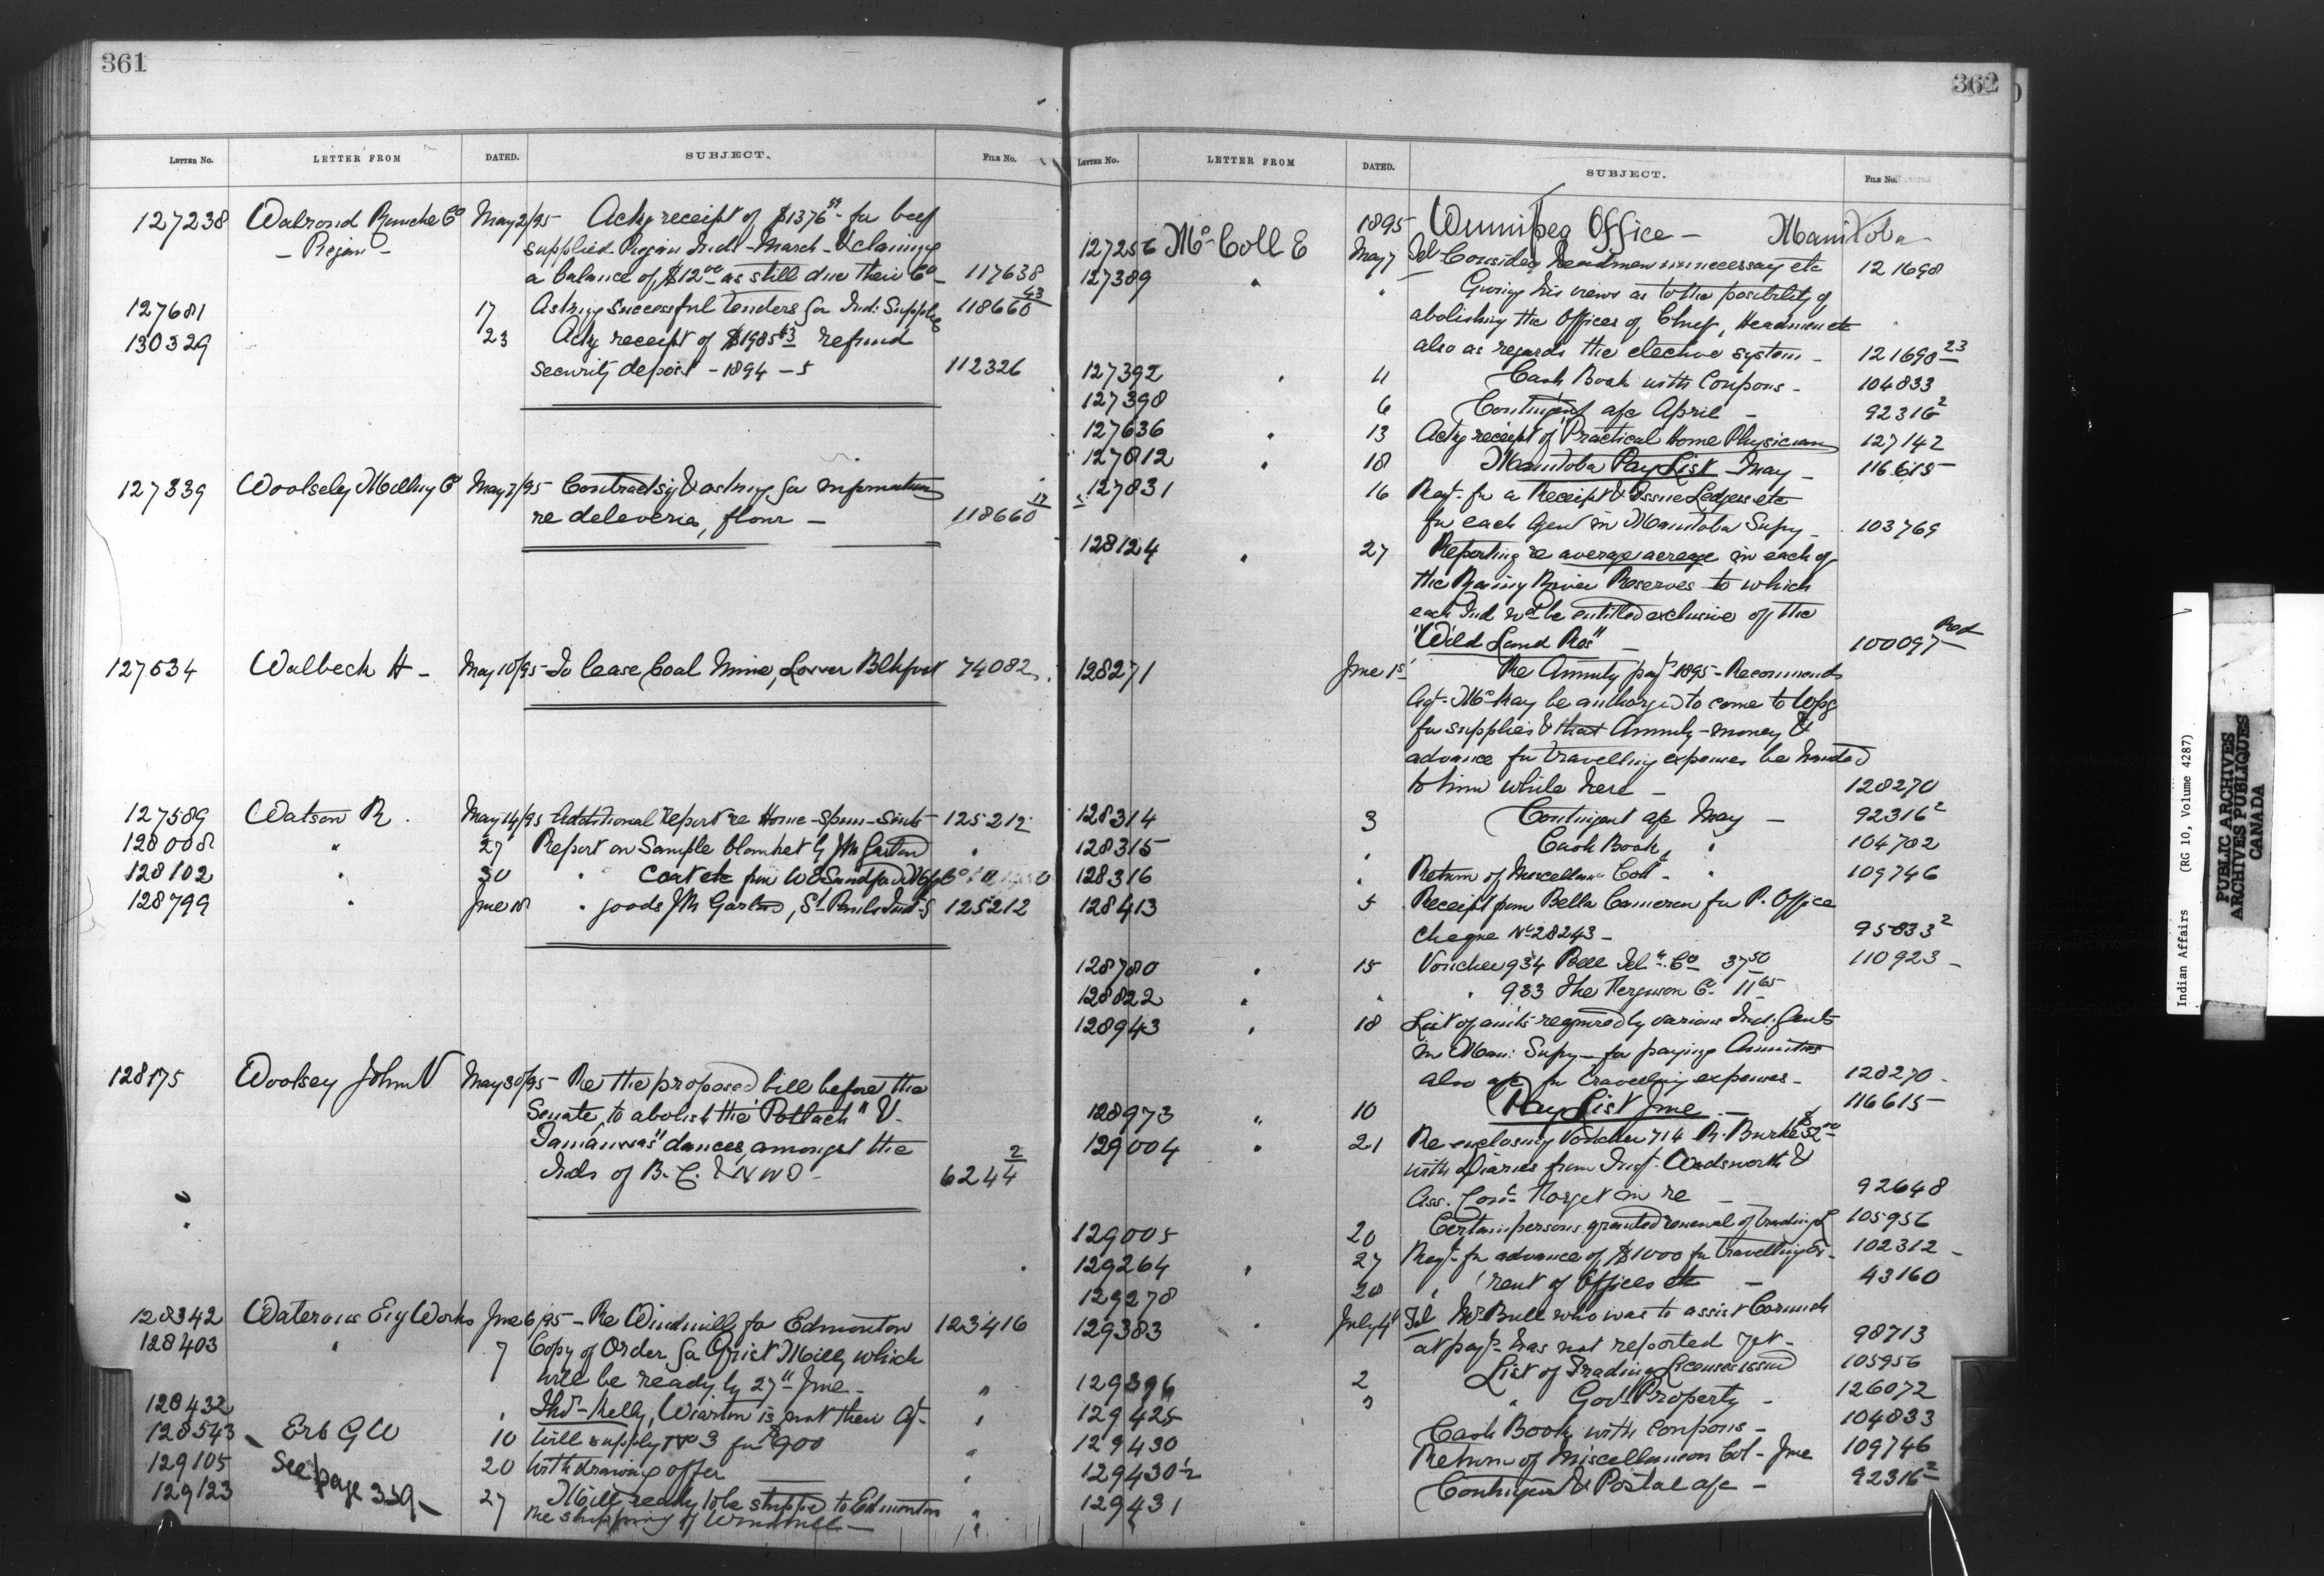 361
LETTER No. LETTER FROM DATED. SUBJECT. FILE No.
127238 Walrond Ranche Co May 2/95 Ackg receipt of $1376 for beef
- Piegan - supplied Piegan Inds - March - & claiming
a balance of $12.00 as still due their Co - 117638
127681 17 Asking successful tenders for Ind: Supplies 118660 43
130329 23 Ackg receipt of $1985 63 refund
security deposit - 1894 - 5 112326
127339 Woolsely Milling Co May 7/95 Contracts & asking for information
re deliveries, flour - 118660 17
127534 Walbeck H - May 10/95 To lease Coal Mine, Lower Blkfoot 74082
127589 Watson R. May 14/95 Additional report re Home-spun-suits 125212
128008 " 27 Report on Sample blanket by J M Garland "
128102 " 30 " Coat etc from W E Sandford Mfg Co
128799 " June 18 " goods J M Garland, St Pauls Ind S 125212
128175 Woolsey John V May 30/95 - Re the proposed bill before the
Senate, to abolish the "Potlach" &
Tamanwas" dances, amongst the
Inds of B.C. & NWT - 6244 2
128342 Waterous Eng Works June 6/95 - Re Windmills for Edmonton 123416
128403 " 7 Copy of Order for Grist Mill, which
will be ready by 27th June - "
128432 " Thos - Kelly, Wiarton is not their Agt - "
128543 Erb G W 10 Will supply No 3 for $900 "
129105 See page 359 20 Withdrawing offer "
129123 27 Mill ready to be shipped to Edmonton "
re shipping of Windmill - "
362
LETTER No. LETTER FROM DATED. SUBJECT. FILE No.
1895 Winnipeg Office - Manitoba
127256 McColl E May 7 Tel Considers headmen unnecessary etc 121698
127389 " " Giving his views as to the posibility of
abolishing the Offices of Chief, Headmen etc
also as regards the elective system - 121698 23
127392 " 11 Cash Book with Coupons - 104833
127398 6 Contingent a/c April - 92316 2
127636 " 13 Ackg receipt of "Practical Home Physician 127142
127812 " 18 Manitoba Pay List - May - 116615
127831 16 Reqt. for a Receipt & Issue Ledgers etc
for each Agent in Manitoba Supy - 103769
128124 " 27 Reporting re average acreage in each of
the Rainy River Reserves to which
each Ind wd be entitled exclusive of the
"Wild Land Res" - 100097 Red
128271 June 1st Re Annuity payt 1895 - Recommends
Agt. McKay be authorized to come to Wpg
for supplies & that Annuity - money &
advance for travelling expenses be handed
to him while here - 128270
128314 3 Contingent a/c May - 92316 2
128315 " Cash Book " 104702
128316 " Return of Miscellans Coll - " 109746
128413 5 Receipt from Bella Cameron for P. Office
Cheque No 28243 - 95833 2
128780 " 15 Voucher 934 Bell Tel. Co 37 50 110923 -
128822 " " " 933 The Ferguson Co 11 65
128943 " 18 List of amts required by various Ind. Agents
in Man: Supy - for paying Annuities
also a/c for travelling expenses - 128270 -
128973 " 10 Pay List June - 116615
129004 " 21 Re-enclosing Voucher 714 R. Burke
with Diaries from Insp. Wadsworth &
Ass. Comr Forget in re - 92648
129005 20 Certain persons granted renewal of trading L 105956
129264 " 27 Reqt. for advance of $1000 for travelling Ex - 102312 -
129278 20 " rent of Offices etc - 43160
129383 " July 4 Tel Mr Bull who was to assist Cornish
at payt has not reported yet - 98713
129396 2 List of Trading Licenses issued 105956
129425 " " Govt Property - 126072
129430 Cash Book with coupons - 104833
129430½ Return of Miscellaneous Col - June 109746
129431 Contingent & Postal a/c - 92316 2
Indian Affairs (RG 10, Volume 4287)
PUBLIC ARCHIVES
ARCHIVES PUBLIQUES
CANADA